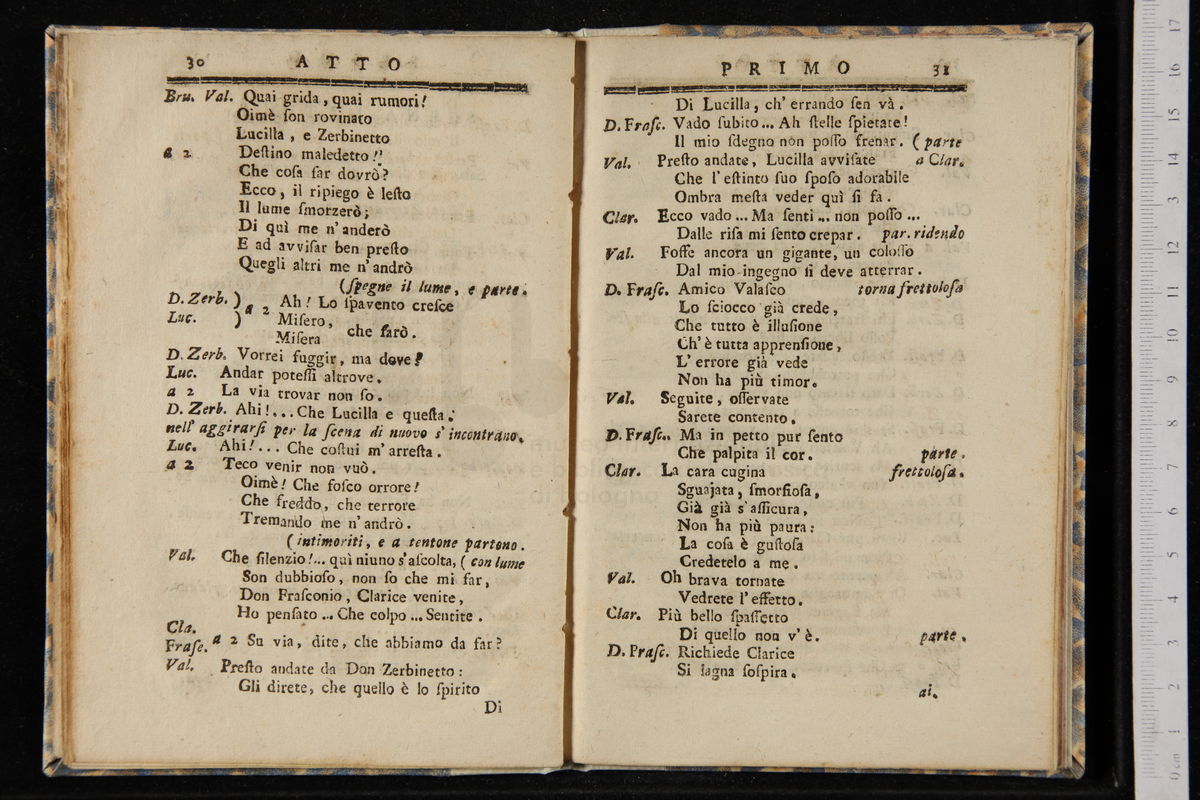 30 ATTO
Bru. Val. Quai grida, quai rumori!
Oimè ſon rovinato
Lucilla, e Zerbinetto
a 2 Deſtino maledetto!
Che coſa far dovrò?
Ecco, il ripiego è leſto
Il lume ſmorzerò;
Di quì me n'anderò
E ad avviſar ben preſto
Quegli altri me n'andrò
(ſpegne il lume, e parte.
D. Zerb. ) a 2 Ah! Lo ſpavento creſce
Luc. ) Miſero,
Miſera che farò.
D. Zerb. Vorrei fuggir, ma dove?
Luc. Andar poteſſi altrove.
a 2 La via trovar non ſo.
D. Zerb. Ahi!... Che Lucilla e queſta.
nell' aggirarſi per la ſcena di nuovo s'incontrano.
Luc. Ahi!... Che coſtui m'arreſta.
a 2 Teco venir non vuò.
Oimè! Che foſco orrore!
Che freddo, che terrore
Tremando me n'andrò.
(intimoriti, e a tentone partono.
Val. Che ſilenzio!... quì niuno s'aſcolta, (con lume
Son dubbioſo, non ſo che mi far,
Don Fraſconio, Clarice venite,
Ho penſato... Che colpo... Sentite.
Cla.
Fraſc. a 2 Su via, dite, che abbiamo da far?
Val. Preſto andate da Don Zerbinetto:
Gli direte, che quello è lo ſpirito
Di
PRIMO 31
Di Lucilla, ch'errando ſen và.
D. Fraſc. Vado ſubito... Ah ſtelle ſpietate!
Il mio ſdegno non poſſo frenar. (parte
Val. Preſto andate, Lucilla avviſate a Clar.
Che l'eſtinto ſuo ſpoſo adorabile
Ombra meſta veder quì ſi fa.
Clar. Ecco vado... Ma ſenti... non poſſo...
Dalle riſa mi ſento crepar. par. ridendo
Val. Foſſe ancora un gigante, un coloſſo
Dal mio ingegno ſi deve atterrar.
D. Fraſc. Amico Valaſco torna frettoloſa
Lo ſciocco già crede,
Che tutto è illuſione
Ch'è tutta apprenſione,
L'errore già vede
Non ha più timor.
Val. Seguite, oſſervate
Sarete contento.
D. Fraſc. Ma in petto pur ſento
Che palpita il cor. parte.
Clar. La cara cugina frettoloſa.
Sguajata, ſmorfioſa,
Già già s'aſſicura,
Non ha più paura:
La coſa è guſtoſa
Credetelo a me.
Val. Oh brava tornate
Vedrete l'effetto.
Clar. Più bello ſpaſſetto
Di quello non v'è. parte.
D. Fraſc. Richiede Clarice
Si lagna ſoſpira.
ai.